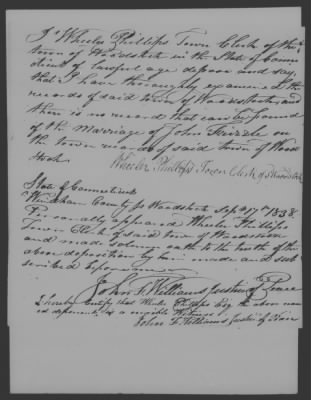 I Wheeler Phillips Town Clerk of the
town of Woodstock in the State of Connec
ticut of lawful age depose and say
that I have thoroughly examined the
records of said town of Woodstock and
there is no record that can be found
of the Marriage of John Frizzle on
the town records of said town of Wood
stock
Wheeler Phillips Town Clerk of Woodstock
State of Connecticut
Windham County ss Woodstock Sep 17th 1838
Personally appeared Wheeler Phillips
Town Clerk of said town of Woodstock
and made solemn oath to the truth of the
above deposition by him made and sub
scribed before me
John F Williams Justice of Peace
I hereby Certify that Wheeler Phillips Esq the above nam
ed deponent is a credible Witness
John F. Williams Justice of Peace